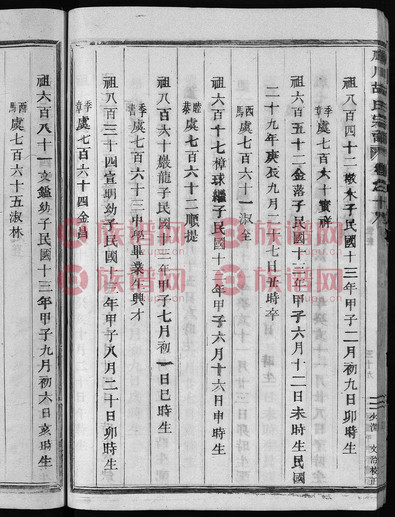 祖八百四十二樹木子民國十三年甲子二月初九日卯時生
季章 虞七百六十實祥
祖六百五十二金落子民國十三年甲子六月十二日未時生民國
二十九年庚辰九月二十七日丑時卒
西馬 虞七百六十一淑全
祖六百十七樟球繼子民國十三年甲子六月十六日申時生
睦綦 虞七百六十二順提
祖八百六十巖龍子民國十三年甲子七月初一日巳時生
季 虞七百六十三中學畢業生興才
祖八百三十四宣明幼子民國十三年甲子八月二十日卯時生
季章 虞七百六十四金昌
祖六百八十一文鎰幼子民國十三年甲子九月初六日亥時生
西馬 虞七百六十五淑林
族谱网